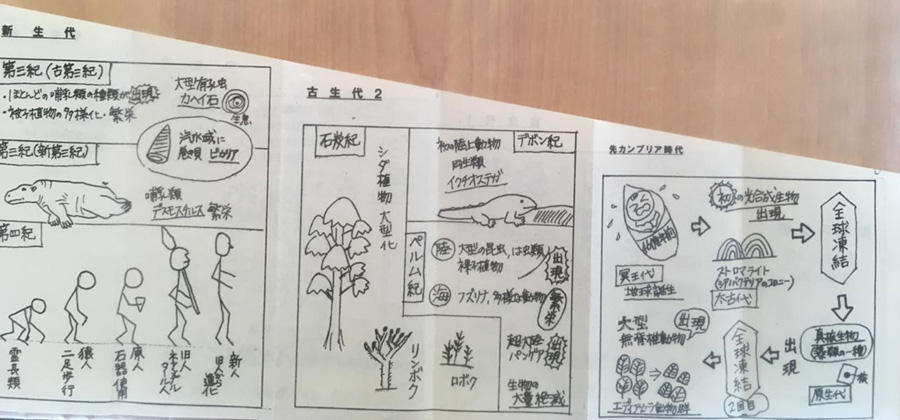 新生代
第三紀(古第三紀)
・ほとんどの哺乳類の種類が出現
・被子植物の多様化・繁栄
大型有孔虫
カヘイ石
生息
第三紀(新第三紀)
汽水域に
巻き貝 ビカリア
哺乳類
デスモスチルス 繁栄
第四紀
霊長類
猿人
二足歩行
原人
石器使用
旧人
ネアンデルタール人
新人
古生代2
石炭紀
シダ植物大型化
リンボク
ロボク
デボン紀
初の陸上動物
両生類
イクチオステガ
ペルム紀
陸
大型の昆虫、は虫類
裸子植物
出現
海
フズリナ、多様な動物
繁栄
超大陸
パンゲア
出現
生物の
大量絶滅
先カンブリア時代
46億年前
冥王代
地球誕生
初の光合成生物
出現
ストロマトライト
(シアノバクテリアのコロニー)
太古代
全球凍結
真核生物
(藻類の一種)
出現
核
原生代
全球凍結
2回目
大型
無脊椎動物
出現
エディアカラ動物群